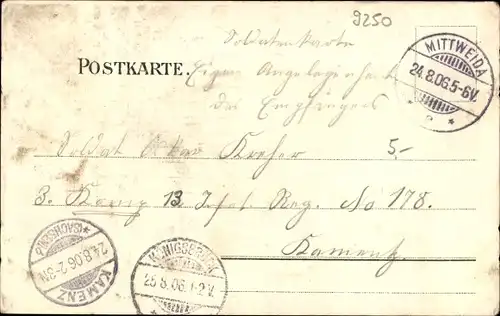 9250
Soldatenkarte
POSTKARTE.
Eigene Angelegenheit
des Empfängers
MITTWEIDA
24.8.06.5-6V.
Soldat Kreher
5.-
3. Komp 13. Inf. Reg. No 178.
Kamenz
(SACHSEN)
24.8.06.2-3N.
KAMENZ
KÖNIGSBRÜCK
25.8.06.1-2V.